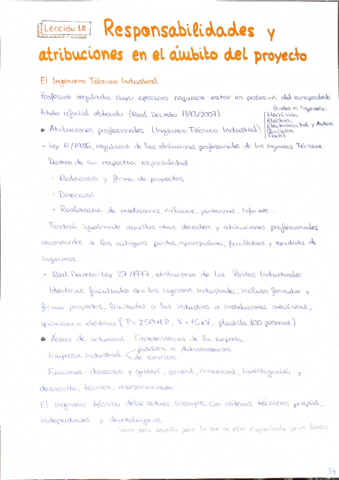 LECCIÓN 18
Responsabilidades y
atribuciones en el ámbito del proyecto
El Ingeniero Técnico Industrial
Profesión regulada cuyo ejercicio requiere estar en posesión del correspondiente
título oficial obtenido (Real Decreto 1393/2007)
Grados en Ingeniería:
Mecánica
Eléctrica
Electrónica Ind y Autom.
Química
Textil
• Atribuciones profesionales (Ingeniero Técnico Industrial)
- Ley 12/1986, reguladora de las atribuciones profesionales de los Ingenieros Técnicos.
Dentro de su respectiva especialidad
- Redacción y firma de proyectos
- Dirección
- Realización de mediciones, cálculos, peritaciones, informes...
Tendrán igualmente aquellos otros derechos y atribuciones profesionales
reconocidos a los antiguos peritos, aparejadores, facultativos y ayudantes de
Ingenieros.
- Real Decreto-Ley 37/1977, atribuciones de los Peritos Industriales
Idénticas facultades que los ingenieros industriales, incluso formular y
firmar proyectos, limitados a las industrias o instalaciones mecánicas,
químicas o eléctricas (P= 250 H.P, V= 15 KV, plantilla 100 personas)
• Áreas de actuación. Características de la empresa
Empresa Industrial
pública o Administración
de servicios
Funciones: dirección y gestión, control, comercial, investigación y
desarrollo, técnica, asesoramiento
El ingeniero técnico debe actuar siempre con criterios técnicos propios,
independientes y deontológicos.
hacer solo aquello para lo que se esté capacitado para hacer
34